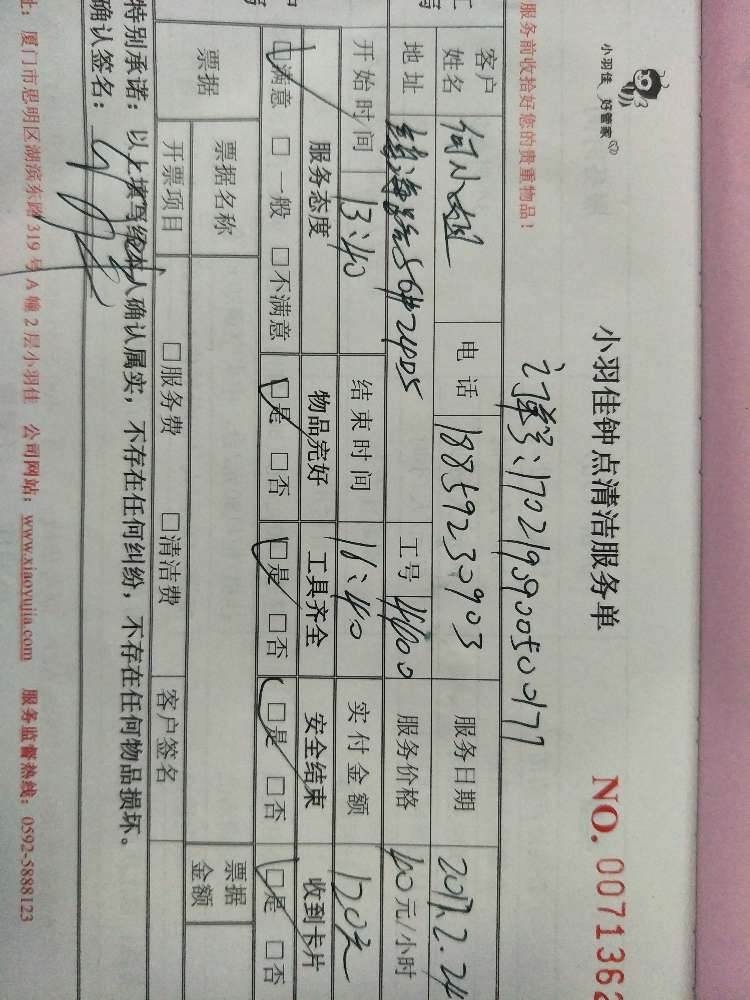 小羽佳 好管家
小羽佳钟点清洁服务单
NO. 0071362
服务前收拾好您的贵重物品！
订单号：1702195900500177
客户姓名 何小姐 电话 18859230903 服务日期 2017.2.24
地址 56#2405 工号 4400 服务价格 40元/小时
开始时间 13:40 结束时间 16:40 实付金额 120元
服务态度 物品完好 工具齐全 安全结束 收到卡片
□满意 □一般 □不满意 □是 □否 □是 □否 □是 □否 □是 □否
票据 票据名称 票据金额
开票项目 □服务费 □清洁费 客户签名
特别承诺：以上填写经本人确认属实，不存在任何纠纷，不存在任何物品损坏。
确认签名：
址：厦门市思明区湖滨东路 319 号 A 幢 2 层小羽佳 公司网站：www.xiaoyujia.com 服务监督热线：0592-5888123